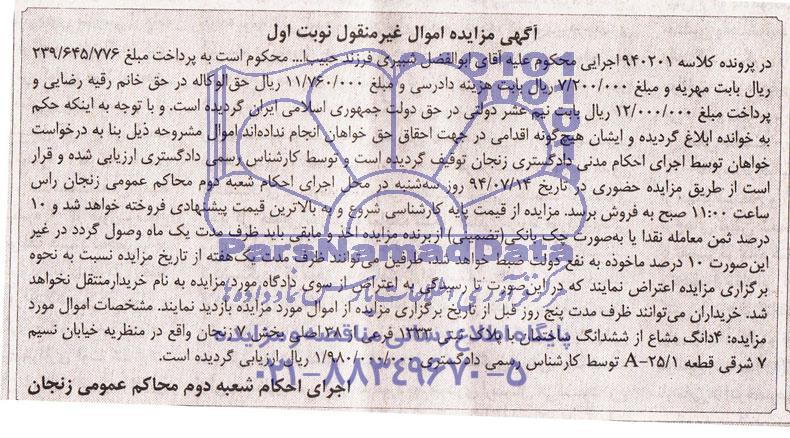 آگهی مزایده اموال غیرمنقول نوبت اول
در پرونده کلاسه ۹۴۰۲۰۱ اجرایی محکوم علیه آقای ابوالفضل شبیری فرزند حبیب‌ا... محکوم است به پرداخت مبلغ ۲۳۹/۶۴۵/۷۷۶
ریال بابت مهریه و مبلغ ۷/۲۰۰/۰۰۰ ریال بابت هزینه دادرسی و مبلغ ۱۱/۷۶۰/۰۰۰ ریال حق‌الوکاله در حق خانم رقیه رضایی و
پرداخت مبلغ ۱۲/۰۰۰/۰۰۰ ریال بابت نیم عشر دولتی در حق دولت جمهوری اسلامی ایران گردیده است. و با توجه به اینکه حکم
به خوانده ابلاغ گردیده و ایشان هیچ‌گونه اقدامی در جهت احقاق حق خواهان انجام نداده‌اند اموال مشروحه ذیل بنا به درخواست
خواهان توسط اجرای احکام مدنی دادگستری زنجان توقیف گردیده است و توسط کارشناس رسمی دادگستری ارزیابی شده و قرار
است از طریق مزایده حضوری در تاریخ ۹۴/۰۷/۱۴ روز سه‌شنبه در محل اجرای احکام شعبه دوم محاکم عمومی زنجان راس
ساعت ۱۱:۰۰ صبح به فروش برسد. مزایده از قیمت پایه کارشناسی شروع و به بالاترین قیمت پیشنهادی فروخته خواهد شد و ۱۰
درصد ثمن معامله نقدا یا به‌صورت چک بانکی(تضمینی) از برنده مزایده اخذ و مابقی باید ظرف مدت یک ماه وصول گردد در غیر
این‌صورت ۱۰ درصد ماخوذه به نفع دولت ضبط خواهد شد. طرفین می‌توانند ظرف مدت یک‌هفته از تاریخ مزایده نسبت به نحوه
برگزاری مزایده اعتراض نمایند که در این‌صورت تا رسیدگی به اعتراض از سوی دادگاه مورد مزایده به نام خریدار منتقل نخواهد
شد. خریداران می‌توانند ظرف مدت پنج روز قبل از تاریخ برگزاری مزایده از اموال مورد مزایده بازدید نمایند. مشخصات اموال مورد
مزایده: ۴دانگ مشاع از ششدانگ ساختمان با پلاک ثبتی ۱۳۳۳ فرعی از ۳۸ اصلی بخش ۷ زنجان واقع در منظریه خیابان نسیم
۷ شرقی قطعه A-۲۵/۱ توسط کارشناس رسمی دادگستری ۱/۹۸۰/۰۰۰/۰۰۰ ریال ارزیابی گردیده است.
اجرای احکام شعبه دوم محاکم عمومی زنجان
ParsNamadData
پایگاه اطلاع رسانی مناقصه و مزایده
۰۲۱-۸۸۳۴۹۶۷۰-۵